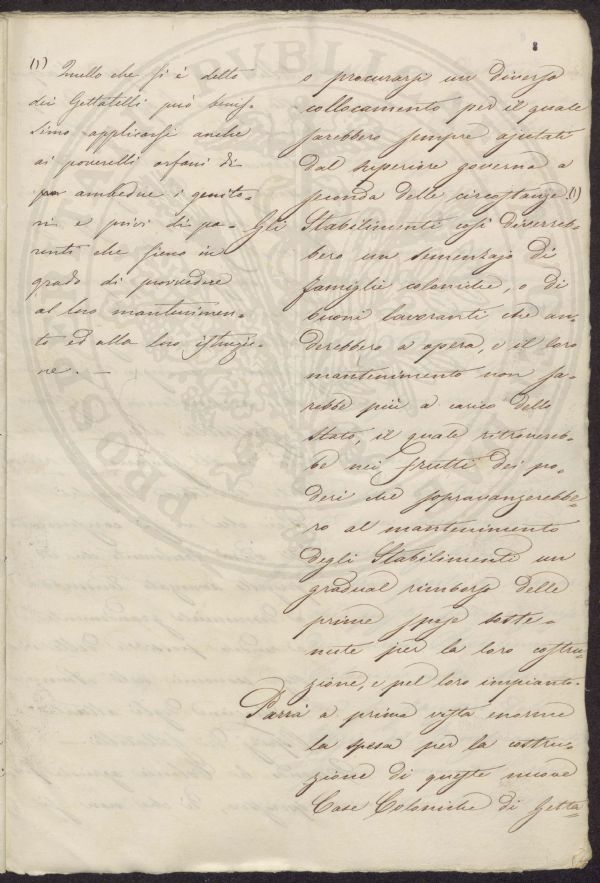 8
(1) Quello che si è detto
dei Gettatelli può benis-
simo applicarsi anche
ai poverelli orfani di
ambedue i genito-
ri e privi di pa-
renti che sieno in
grado di provvedere
al loro mantenimen-
to ed alla loro istruzio-
ne. —
o procurarsi un diverso
collocamento per il quale
sarebbero sempre ajutati
dal superiore governo a
seconda delle circostanze (1)
Gli Stabilimenti così diverreb-
bero un semenzajo di
famiglie coloniche, o di
buoni lavoranti che an-
derebbero a opera, e il loro
mantenimento non sa-
rebbe più a carico dello
Stato, il quale ritrovereb-
be nei frutti dei po-
deri che sopravanzerebbe-
ro al mantenimento
degli Stabilimenti un
gradual rimborso delle
prime spese soste-
nute per la loro costru-
zione, e pel loro impianto.
Parrà a prima vista enorme
la spesa per la costru-
zione di queste nuove
Case Coloniche di Getta-